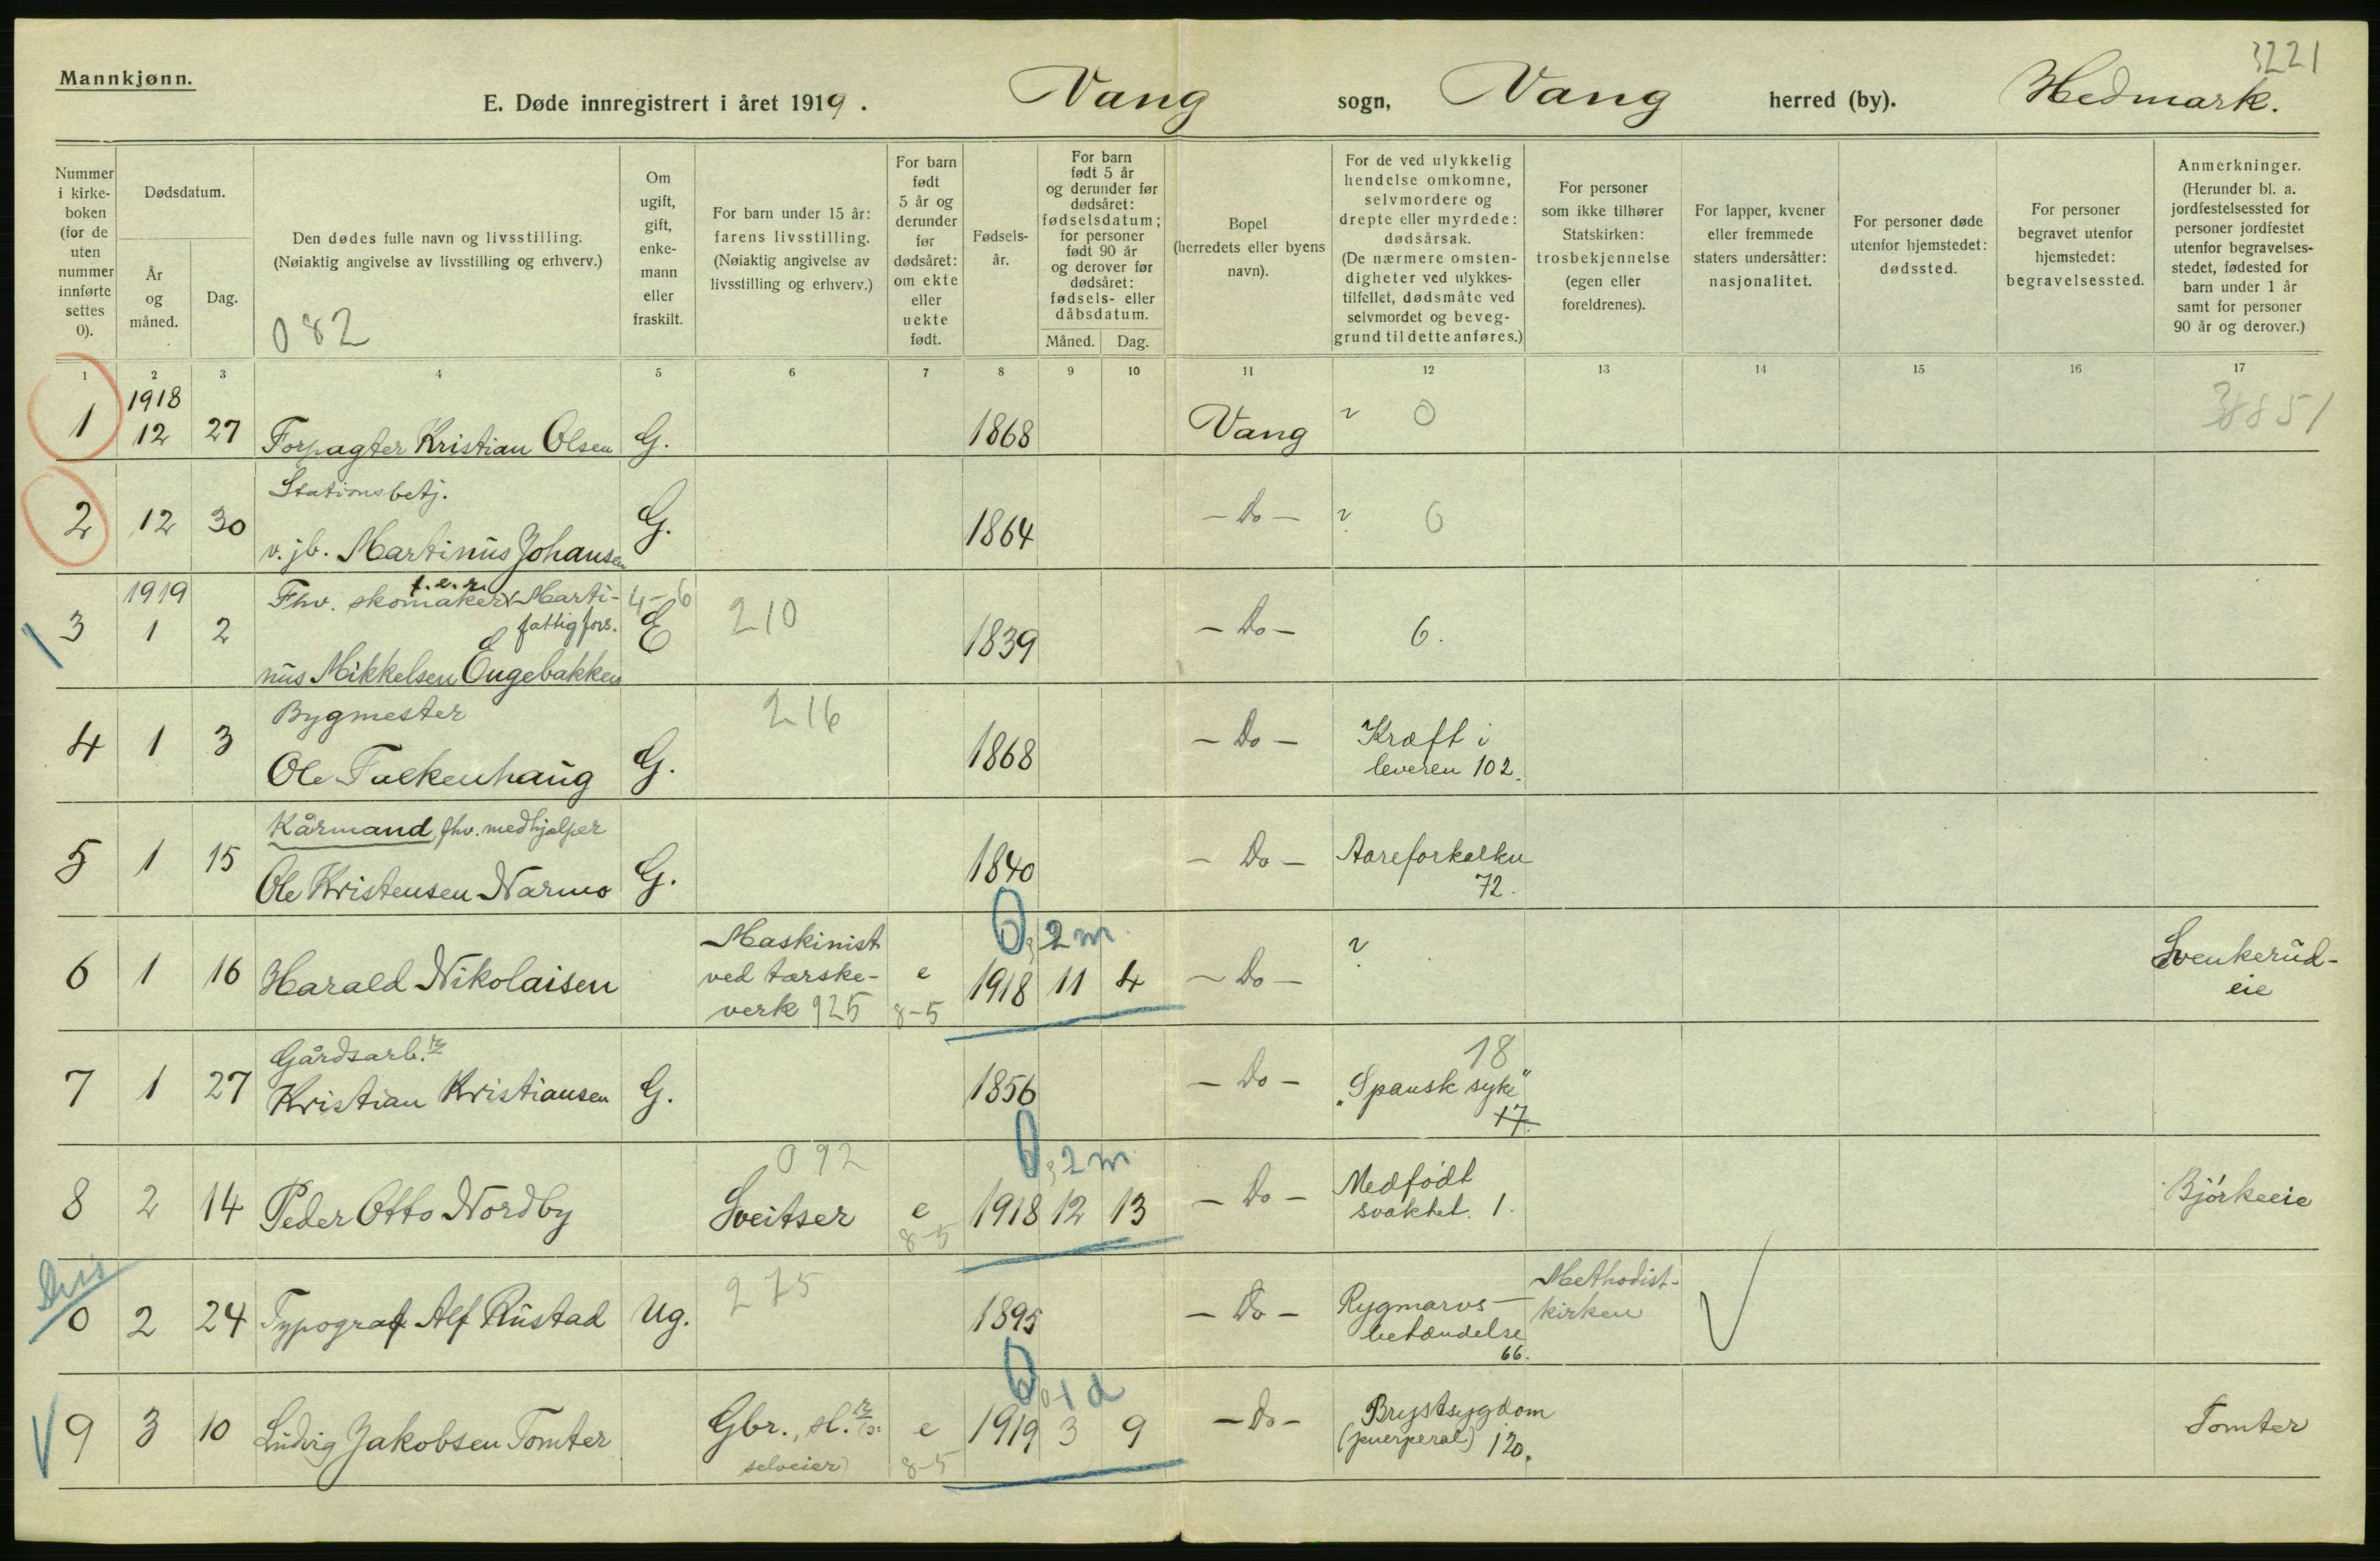 3221
Mannkjønn.
E. Døde innregistrert i året 1919. Vang sogn, Vang herred (by). Hedmark.
Nummer i kirke-boken (for de uten nummer innførte settes 0).
Dødsdatum.
År og måned.
Dag.
Den dødes fulle navn og livsstilling.
(Nøiaktig angivelse av livsstilling og erhverv.)
082
Om ugift, gift, enke-mann eller fraskilt.
For barn under 15 år: farens livsstilling.
(Nøiaktig angivelse av livsstilling og erhverv.)
For barn født 5 år og derunder før dødsåret: om ekte eller uekte født.
Fødsels-år.
For barn født 5 år og derunder før dødsåret: fødselsdatum; for personer født 90 år og derover før dødsåret: fødsels- eller dåbsdatum.
Måned. Dag.
Bopel (herredets eller byens navn).
For de ved ulykkelig hendelse omkomne, selvmordere og drepte eller myrdede: dødsårsak.
(De nærmere omsten-digheter ved ulykkes-tilfellet, dødsmåte ved selvmordet og beveg-grund til dette anføres.)
For personer som ikke tilhører Statskirken: trosbekjennelse (egen eller foreldrenes).
For lapper, kvener eller fremmede staters undersåtter: nasjonalitet.
For personer døde utenfor hjemstedet: dødssted.
For personer begravet utenfor hjemstedet: begravelsessted.
Anmerkninger.
(Herunder bl. a. jordfestelsessted for personer jordfestet utenfor begravelses-stedet, fødested for barn under 1 år samt for personer 90 år og derover.)
1 2 3 4 5 6 7 8 9 10 11 12 13 14 15 16 17
1918
1 12 27 Forpagter Kristian Olsen G. 1868 Vang ? 0
Stationsbetj.
2 12 30 v. jb. Martinus Johansen G. 1864 - Do - ? 0
1919 f.e.r.
Fhv. skomaker Marti- 4-6
3 1 2 fattigfors. E 210 1839 - Do - 6.
nus Mikkelsen Engebakken
Bygmester 216
4 1 3 Ole Falkenhaug G. 1868 - Do - Kræft i
leveren 102.
Kårmand, fhv. medhjælper
5 1 15 Ole Kristensen Narmo G. 1840 - Do - Aareforkalkn
72.
Maskinist 0, 2 m
6 1 16 Harald Nikolaisen ved tærske- e 1918 11 4 - Do - ? Svenkerud-
verk 925 8-5 eie
Gårdsarb. 18
7 1 27 Kristian Kristiansen G. 1856 - Do - "Spansk syke"
17.
092 0, 2 m
8 2 14 Peder Otto Nordby Sveitser e 1918 12 13 - Do - Medfødt
svakhet. 1. Bjørkeeie
8-5
Diss
275 Methodist-
0 2 24 Typograf Alf Rustad Ug. 1895 - Do - Rygmarvs- kirken
betændelse
66.
0, 1 d
9 3 10 Ludvig Jakobsen Tomter Gbr., sl. (ɔ: e 1919 3 9 - Do - Brystsygdom Tomter
selveier) 8-5 (puerperal) 120.